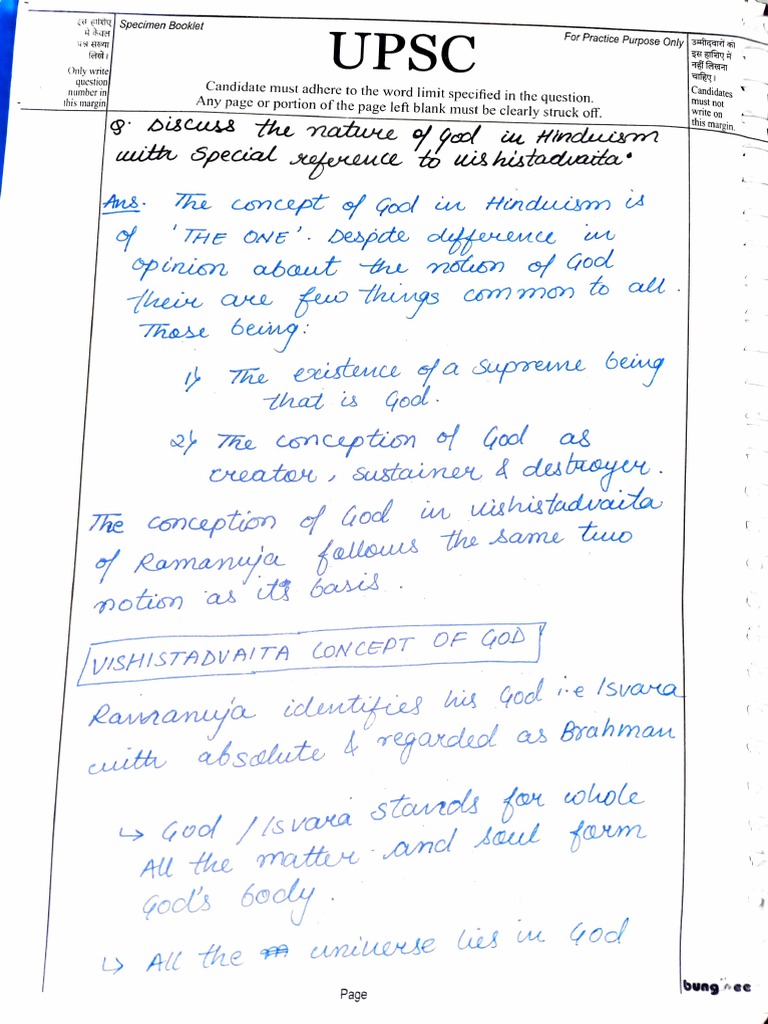 इस हाशिए
में केवल
प्रश्न संख्या
लिखें।
Only write
question
number in
this margin
Specimen Booklet
For Practice Purpose Only
UPSC
Candidate must adhere to the word limit specified in the question.
Any page or portion of the page left blank must be clearly struck off.
उम्मीदवारों को
इस हाशिए में
नहीं लिखना
चाहिए।
Candidates
must not
write on
this margin.
Q. Discuss the nature of God in Hinduism
with special reference to vishistadvaita.
Ans. The concept of God in Hinduism is
of 'THE ONE'. Despite difference in
opinion about the notion of God
their are few things common to all.
Those being:
1) The existence of a supreme being
that is God.
2) The conception of God as
creator, sustainer & destroyer.
The conception of God in vishistadvaita
of Ramanuja follows the same two
notion as its basis.
VISHISTADVAITA CONCEPT OF GOD
Ramanuja identifies his God i.e Isvara
with absolute & regarded as Brahman
↳ God / Isvara stands for whole
All the matter and soul form
God's body.
↳ All the universe lies in God
Page